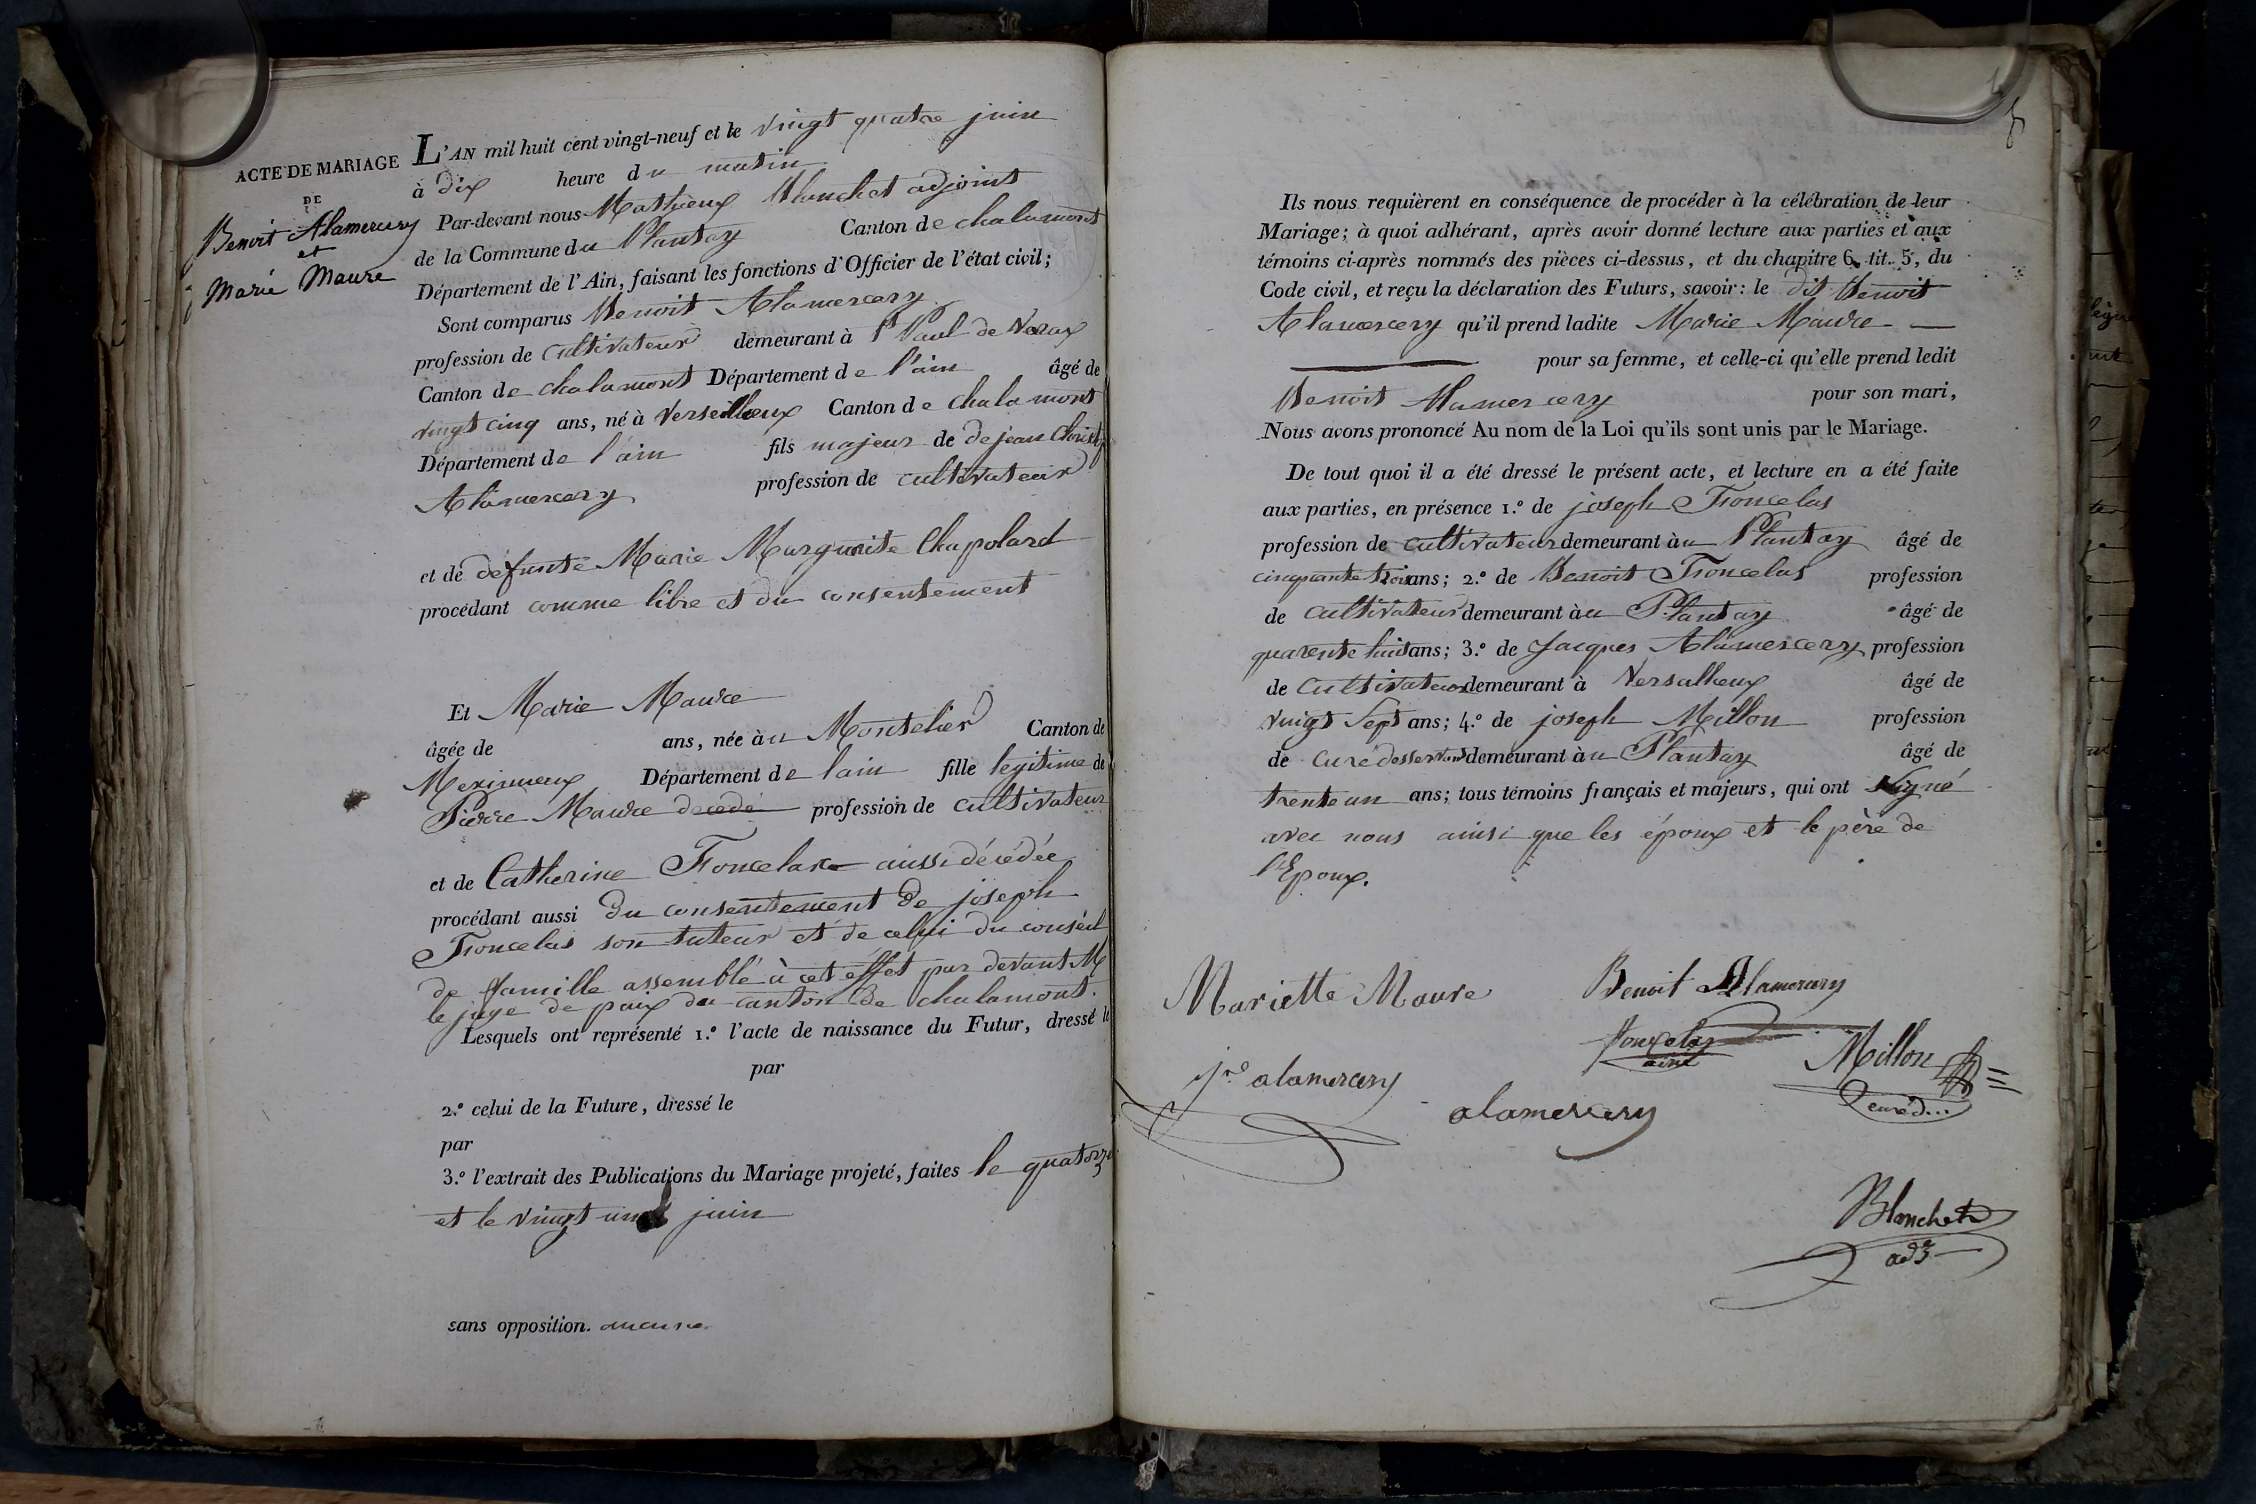 ACTE DE MARIAGE
DE
Benoit Alamercery
et
Marie Maure
L'AN mil huit cent vingt-neuf et le vingt quatre juin
à dix heure du matin
Par-devant nous Mathieux Blanchet adjoint
de la Commune du Plantay Canton de chalamont
Département de l'Ain, faisant les fonctions d'Officier de l'état civil;
Sont comparus Benoit Alamercery
profession de cultivateur demeurant à St Paul de Varax
Canton de chalamont Département de l'ain âgé de
vingt cinq ans, né à Verseilleux Canton de chalamont
Département de l'ain fils majeur de de jean Christ
Alamercery profession de cultivateur
et de défunte Marie Marguerite Chapolard
procédant comme libre et du consentement
Et Marie Maure
âgée de ans, née àu Montelier Canton de
Meximieux Département de lain fille legitime de
Pierre Maure decedé profession de cultivateur
et de Catherine Froncelas aussi décédée
procédant aussi du consentement de joseph
Froncelas son tuteur et de celui du conseil
de famille assemblé à cet éffet par devant M
le juge de paix du canton de chalamont.
Lesquels ont représenté 1.º l'acte de naissance du Futur, dressé le
par
2.º celui de la Future, dressé le
par
3.º l'extrait des Publications du Mariage projeté, faites le quatorze
et le vingt un juin
sans opposition. aucune
Ils nous requièrent en conséquence de procéder à la célébration de leur
Mariage; à quoi adhérant, après avoir donné lecture aux parties et aux
témoins ci-après nommés des pièces ci-dessus, et du chapitre 6, tit. 5, du
Code civil, et reçu la déclaration des Futurs, savoir: le dit Benoit
Alamercery qu'il prend ladite Marie Maure
pour sa femme, et celle-ci qu'elle prend ledit
Benoit Alamercery pour son mari,
Nous avons prononcé Au nom de la Loi qu'ils sont unis par le Mariage.
De tout quoi il a été dressé le présent acte, et lecture en a été faite
aux parties, en présence 1.º de joseph Froncelas
profession de cultivateur demeurant àu Plantay âgé de
cinquante trois ans; 2.º de Benoit Froncelas profession
de cultivateur demeurant àu Plantay âgé de
quarente huit ans; 3.º de Jacques Alamercery profession
de cultivateur demeurant à Versalheux âgé de
vingt Sept ans; 4.º de joseph Millon profession
de curé desservant demeurant àu Plantay âgé de
trente un ans; tous témoins français et majeurs, qui ont signé
avec nous ainsi que les époux et le père de
l'Epoux.
Mariette Maure Benoit Alamercery
aine
Millon
curé d...
alamercery
alamercery
Blanchet
adj